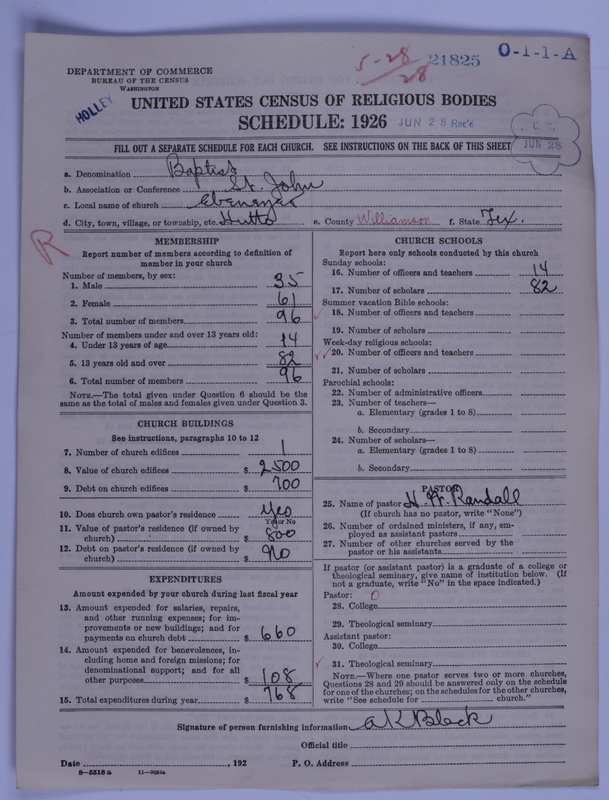 5-28/28 21825 O-1-1-A
DEPARTMENT OF COMMERCE
BUREAU OF THE CENSUS
WASHINGTON
HOLLEY
UNITED STATES CENSUS OF RELIGIOUS BODIES
SCHEDULE: 1926 JUN 28 Rec'd
JUN 28
FILL OUT A SEPARATE SCHEDULE FOR EACH CHURCH. SEE INSTRUCTIONS ON THE BACK OF THIS SHEET
a. Denomination Baptist
b. Association or Conference St. John
c. Local name of church Ebenezar
d. City, town, village, or township, etc. Hutto e. County Williamson f. State Tex.
R
MEMBERSHIP
Report number of members according to definition of
member in your church
Number of members, by sex:
1. Male 35
2. Female 61
3. Total number of members 96
Number of members under and over 13 years old:
4. Under 13 years of age 14
5. 13 years old and over 82
6. Total number of members 96
NOTE.—The total given under Question 6 should be
same as the total of males and females given under Question 3.
CHURCH BUILDINGS
See instructions, paragraphs 10 to 12
7. Number of church edifices 1
8. Value of church edifices $ 2500
9. Debt on church edifices $ 700
10. Does church own pastor's residence yes
Yes or No
11. Value of pastor's residence (if owned by
church) $ 800
12. Debt on pastor's residence (if owned by
church) $ no
EXPENDITURES
Amount expended by your church during last fiscal year
13. Amount expended for salaries, repairs,
and other running expenses; for im-
provements or new buildings; and for
payments on church debt $ 660
14. Amount expended for benevolences, in-
cluding home and foreign missions; for
denominational support; and for all
other purposes $ 108
15. Total expenditures during year $ 768
CHURCH SCHOOLS
Report here only schools conducted by this church
Sunday schools:
16. Number of officers and teachers 14
17. Number of scholars 82
Summer vacation Bible schools:
18. Number of officers and teachers
19. Number of scholars
Week-day religious schools:
20. Number of officers and teachers
21. Number of scholars
Parochial schools:
22. Number of administrative officers
23. Number of teachers—
a. Elementary (grades 1 to 8)
b. Secondary
24. Number of scholars—
a. Elementary (grades 1 to 8)
b. Secondary
PASTOR
25. Name of pastor H. W. Randall
(If church has no pastor, write "None")
26. Number of ordained ministers, if any, em-
ployed as assistant pastors
27. Number of other churches served by the
pastor or his assistants
If pastor (or assistant pastor) is a graduate of a college or
theological seminary, give name of institution below. (If
not a graduate, write "No" in the space indicated.)
Pastor: 0
28. College
29. Theological seminary
Assistant pastor:
30. College
31. Theological seminary
NOTE.—Where one pastor serves two or more churches,
Questions 28 and 29 should be answered only on the schedule
for one of the churches; on the schedules for the other churches,
write "See schedule for church."
Signature of person furnishing information A K Black
Official title
Date , 192 P. O. Address
8—5518 a 11—9554a